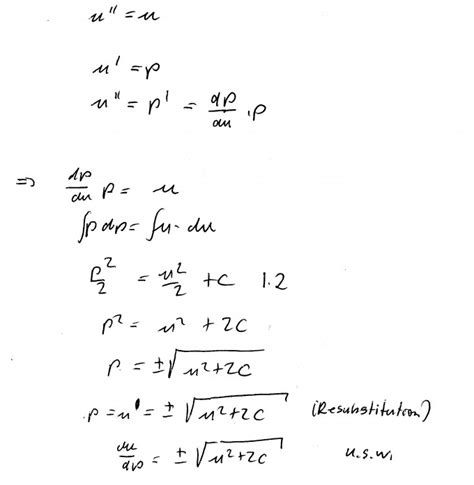 u'' = u
u' = p
u'' = p' = dp/du · p
⇒ dp/du p = u
∫p dp = ∫u · du
p²/2 = u²/2 + C 1.2
p² = u² + 2C
p = ±√(u²+2C)
p = u' = ±√(u²+2C) (Resubstitution)
du/dp = ±√(u²+2C) u.s.w.